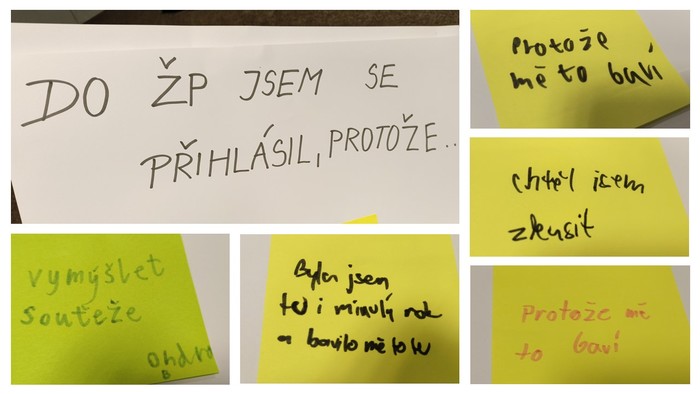 DO ŽP JSEM SE
PŘIHLÁSIL, PROTOŽE..
Protože
mě to baví
chtěl jsem
zkusit
vymýšlet
soutěže
Ondra
B
Byla jsem
tu i minulý rok
a bavilo mě to tu
Protože mě
to baví